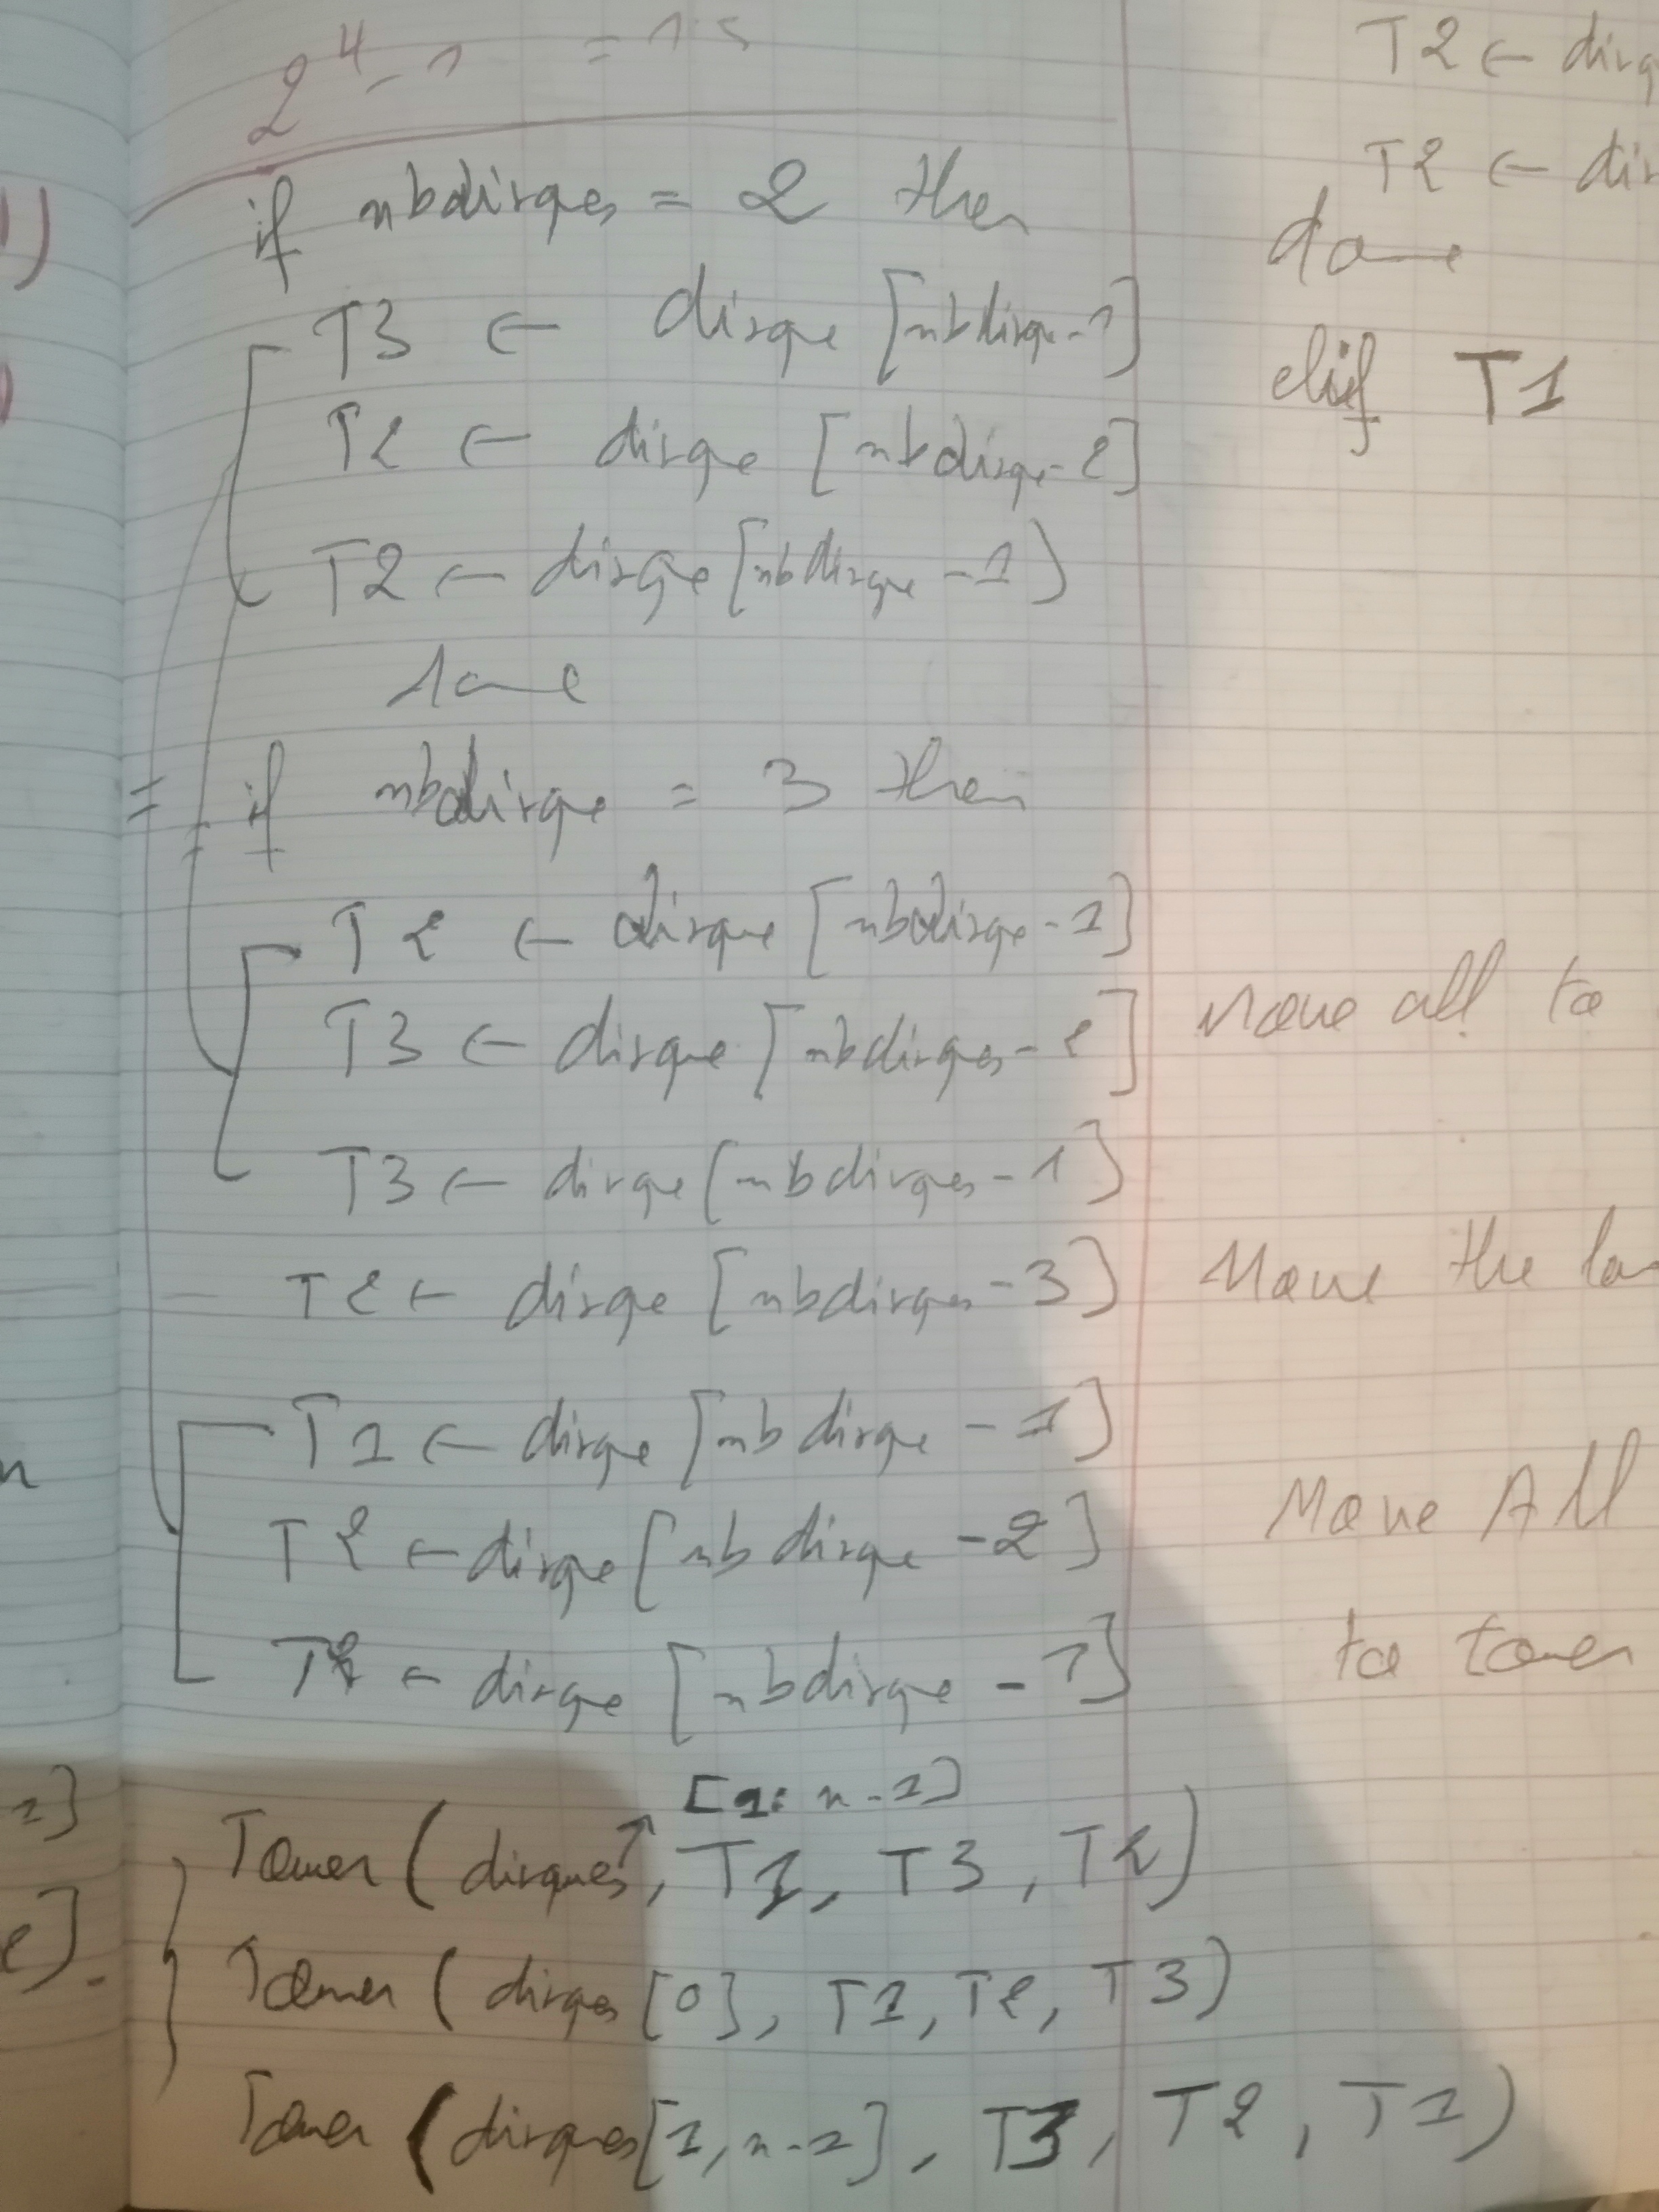 2^4 - 1 = 15
if nbdisques = 2 then
T3 ← disque [nbdisque-1]
T2 ← disque [nbdisque-2]
T2 ← disque [nbdisque-1]
done
if nbdisque = 3 then
T2 ← disque [nbdisque-1]
T3 ← disque [nbdisques-2]
T3 ← disque [nbdisques-1]
T2 ← disque [nbdisques-3]
T1 ← disque [nbdisque-1]
T2 ← disque [nbdisque-2]
T2 ← disque [nbdisque-1]
[1: n-1]
Tower (disques, T1, T3, T2)
Tower (disques [0], T1, T2, T3)
Tower (disques [1, n-1], T3, T2, T1)
T2 ←
T2 ←
done
elif T1
Move all to
Move the
Move All
to tower